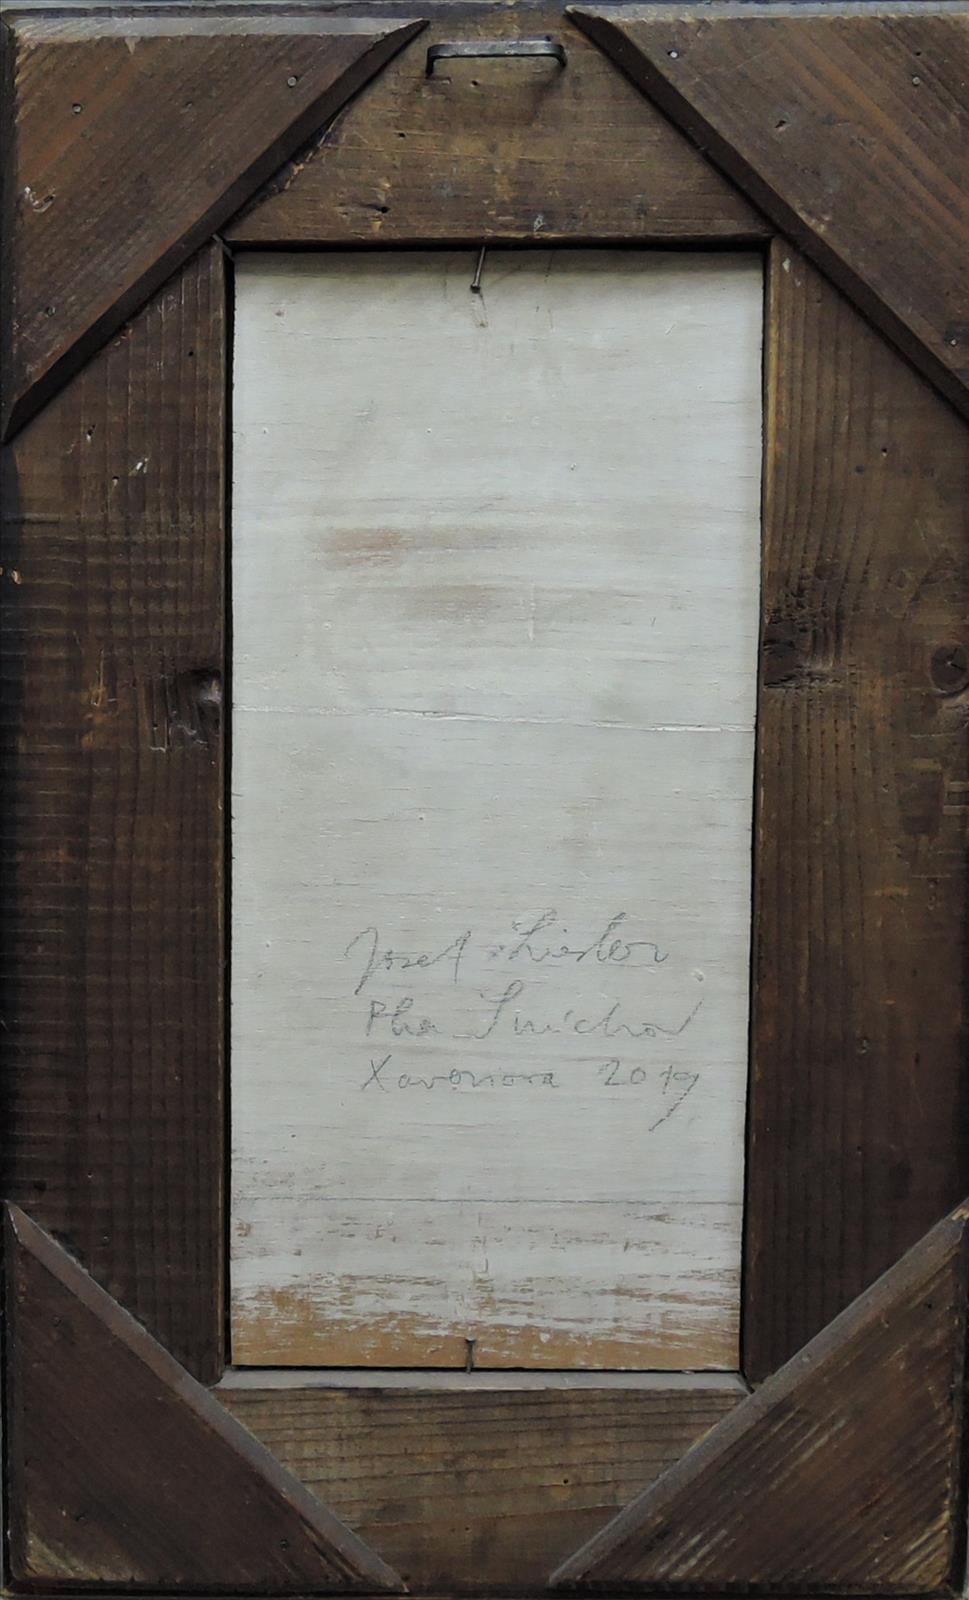 Josef Liesler
Pha Smíchov
Xaveriova 2019